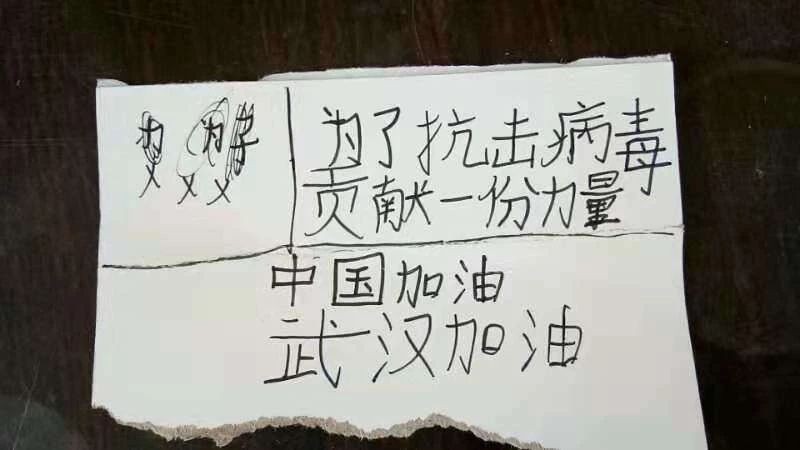 为了抗击病毒
贡献一份力量
中国加油
武汉加油